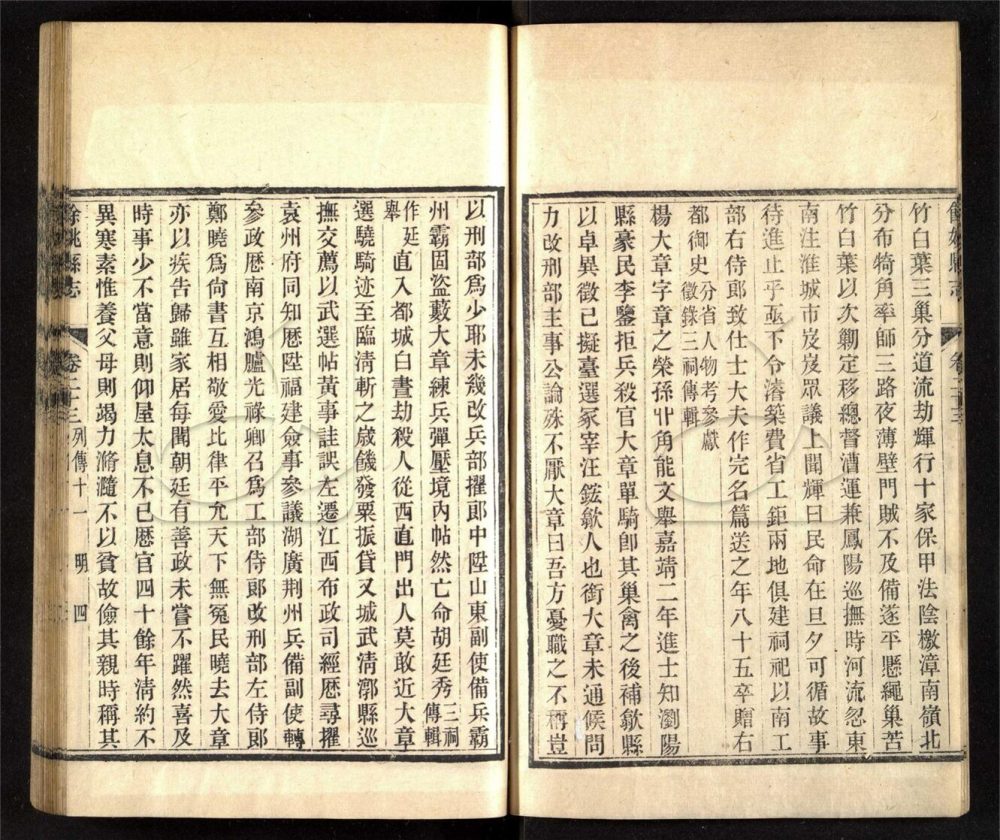 餘姚縣志
卷二十三
竹白葉三巢分道流劫輝行十家保甲法陰檄漳南嶺北
分布犄角率師三路夜薄壁門賊不及備遂平懸繩巢苦
竹白葉以次勦定移總督漕運兼鳳陽巡撫時河流忽東
南注淮城市岌岌眾議上聞輝曰民命在旦夕可循故事
待進止乎亟下令濬築費省工鉅兩地俱建祠祀以南工
部右侍郎致仕士大夫作完名篇送之年八十五卒贈右
都御史分省人物考參獻徵錄三祠傳輯
楊大章字章之榮孫丱角能文舉嘉靖二年進士知瀏陽
縣豪民李鑒拒兵殺官大章單騎卽其巢禽之後補歙縣
以卓異徵已擬臺選冢宰汪鋐歙人也銜大章未通候問
力改刑部主事公論殊不厭大章曰吾方憂職之不稱豈
以刑部爲少耶未幾改兵部擢郎中陞山東副使備兵霸
州霸固盜藪大章練兵彈壓境內帖然亡命胡廷秀三祠傳輯
作廷舉直入都城白晝劫殺人從西直門出人莫敢近大章
選驍騎迹至臨淸斬之歲饑發粟振貸又城武清漷縣巡
撫交薦以武選帖黃事詿誤左遷江西布政司經歷尋擢
袁州府同知歷陞福建僉事參議湖廣荆州兵備副使轉
參政歷南京鴻臚光祿卿召爲工部侍郎改刑部左侍郎
鄭曉爲尙書互相敬愛比律平允天下無冤民曉去大章
亦以疾告歸雖家居每聞朝廷有善政未嘗不躍然喜及
時事少不當意則仰屋太息不已歷官四十餘年淸約不
異寒素惟養父母則竭力滫瀡不以貧故儉其親時稱其
餘姚縣志
卷二十三
列傳十一
明
四